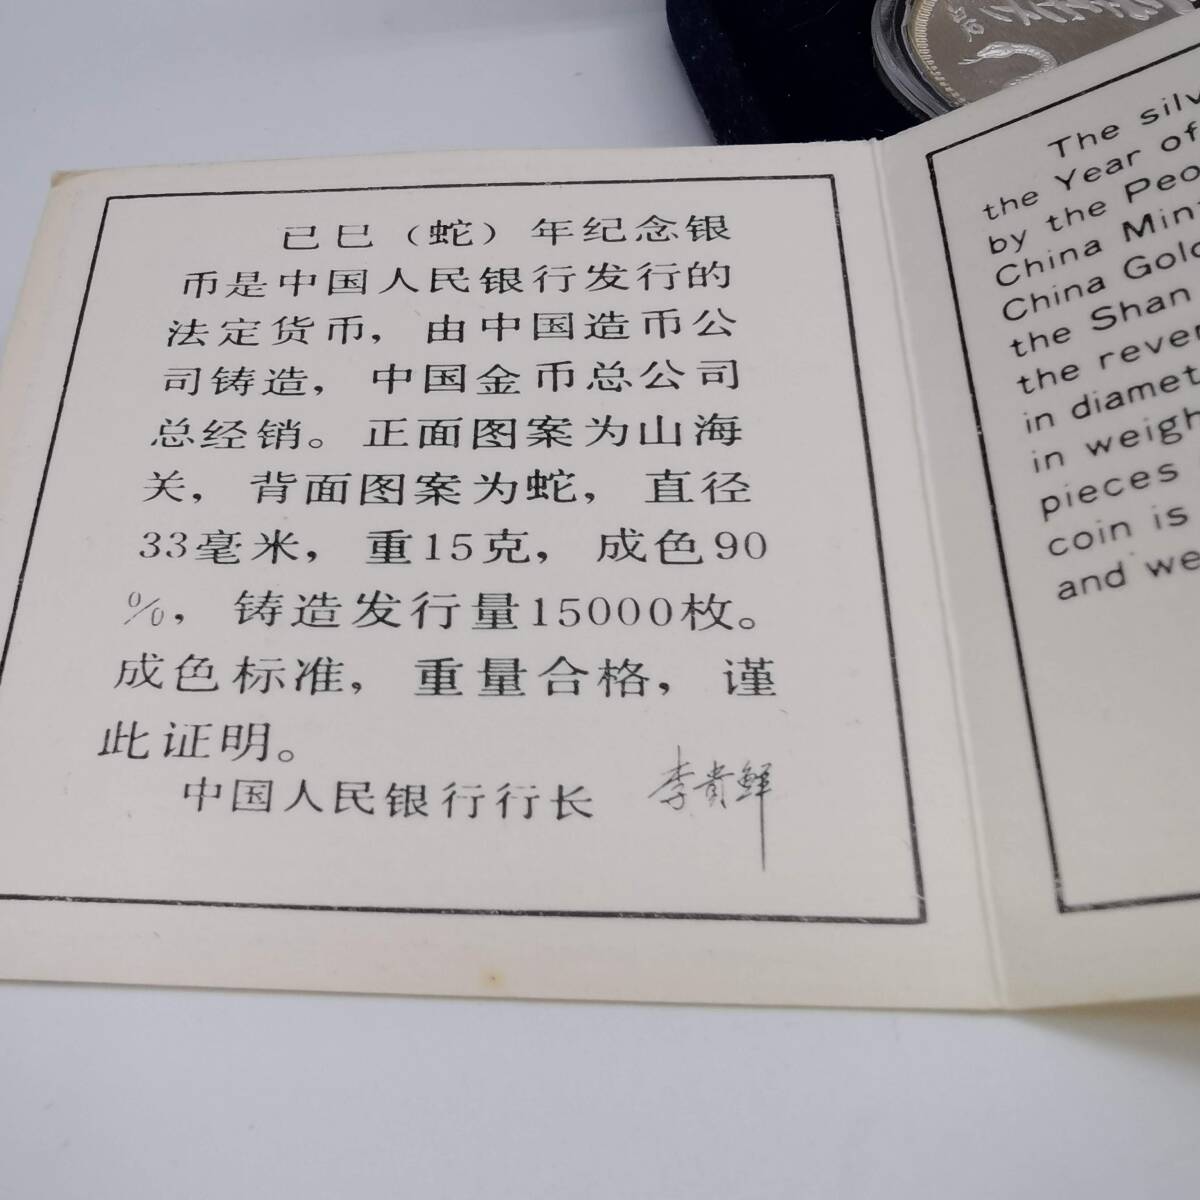 已巳（蛇）年纪念银
币是中国人民银行发行的
法定货币，由中国造币公
司铸造，中国金币总公司
总经销。正面图案为山海
关，背面图案为蛇，直径
33毫米，重15克，成色90
%，铸造发行量15000枚。
成色标准，重量合格，谨
此证明。
中国人民银行行长 李贵鲜
The
the Year of
by the
China
China
the Shan
the
in
in
pieces
coin is
and